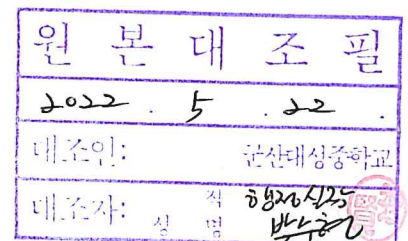 원본대조필
2022 . 5 . 22 .
대조인: 군산대성중학교
대조자: 직 행정실장
성명